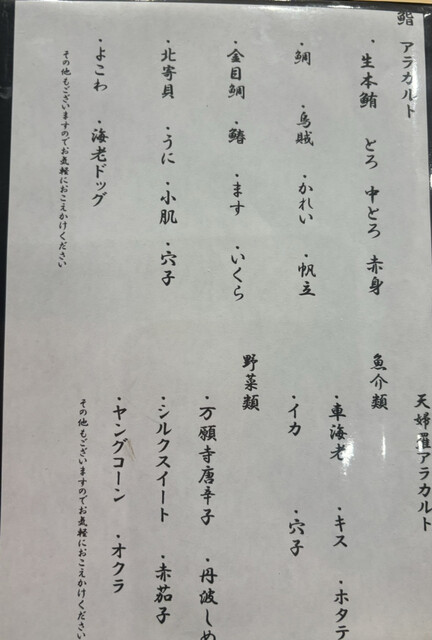 鮨 アラカルト
・生本鮪 とろ 中とろ 赤身
・鯛 ・烏賊 ・かれい ・帆立
・金目鯛 ・鰆 ・ます ・いくら
・北寄貝 ・うに ・小肌 ・穴子
・よこわ ・海老ドッグ
その他もございますのでお気軽におこえかけください
天婦羅アラカルト
魚介類
・車海老 ・キス ・ホタテ
・イカ ・穴子
野菜類
・万願寺唐辛子 ・丹波しめ
・シルクスイート ・赤茄子
・ヤングコーン ・オクラ
その他もございますのでお気軽におこえかけください